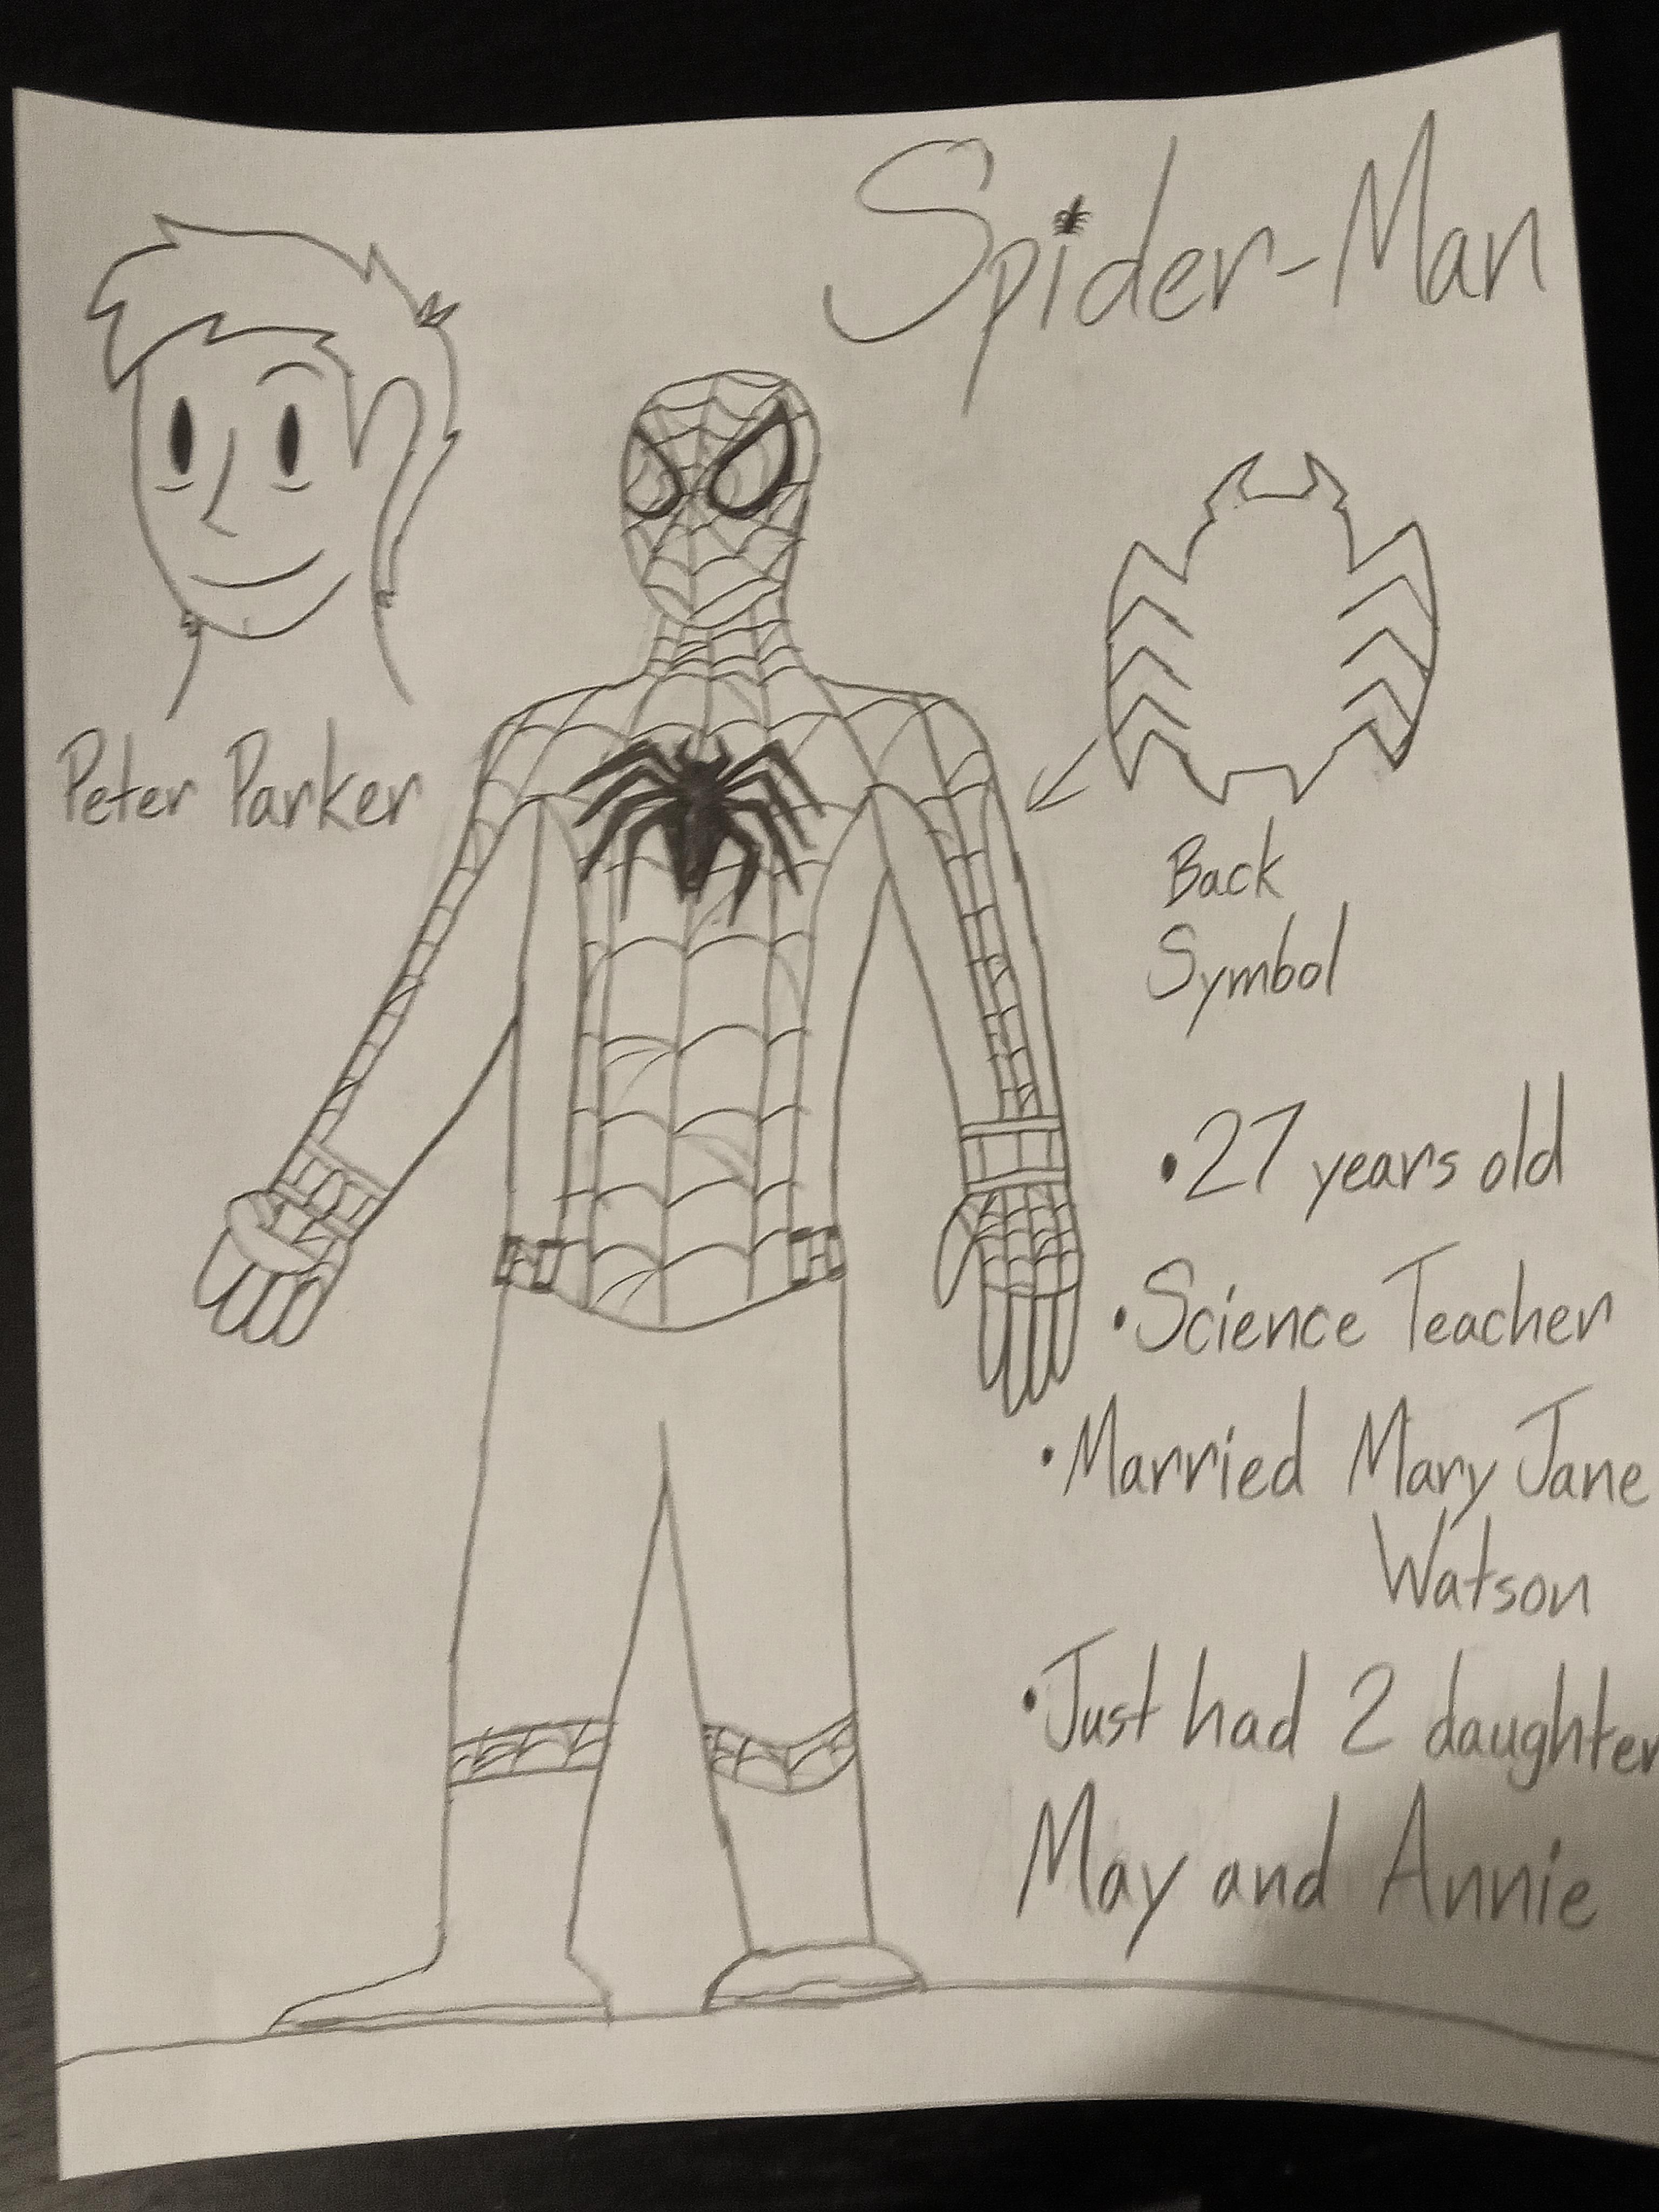 Spider-Man
Peter Parker
Back
Symbol
•27 years old
•Science Teacher
•Married Mary Jane
Watson
•Just had 2 daughter
May and Annie